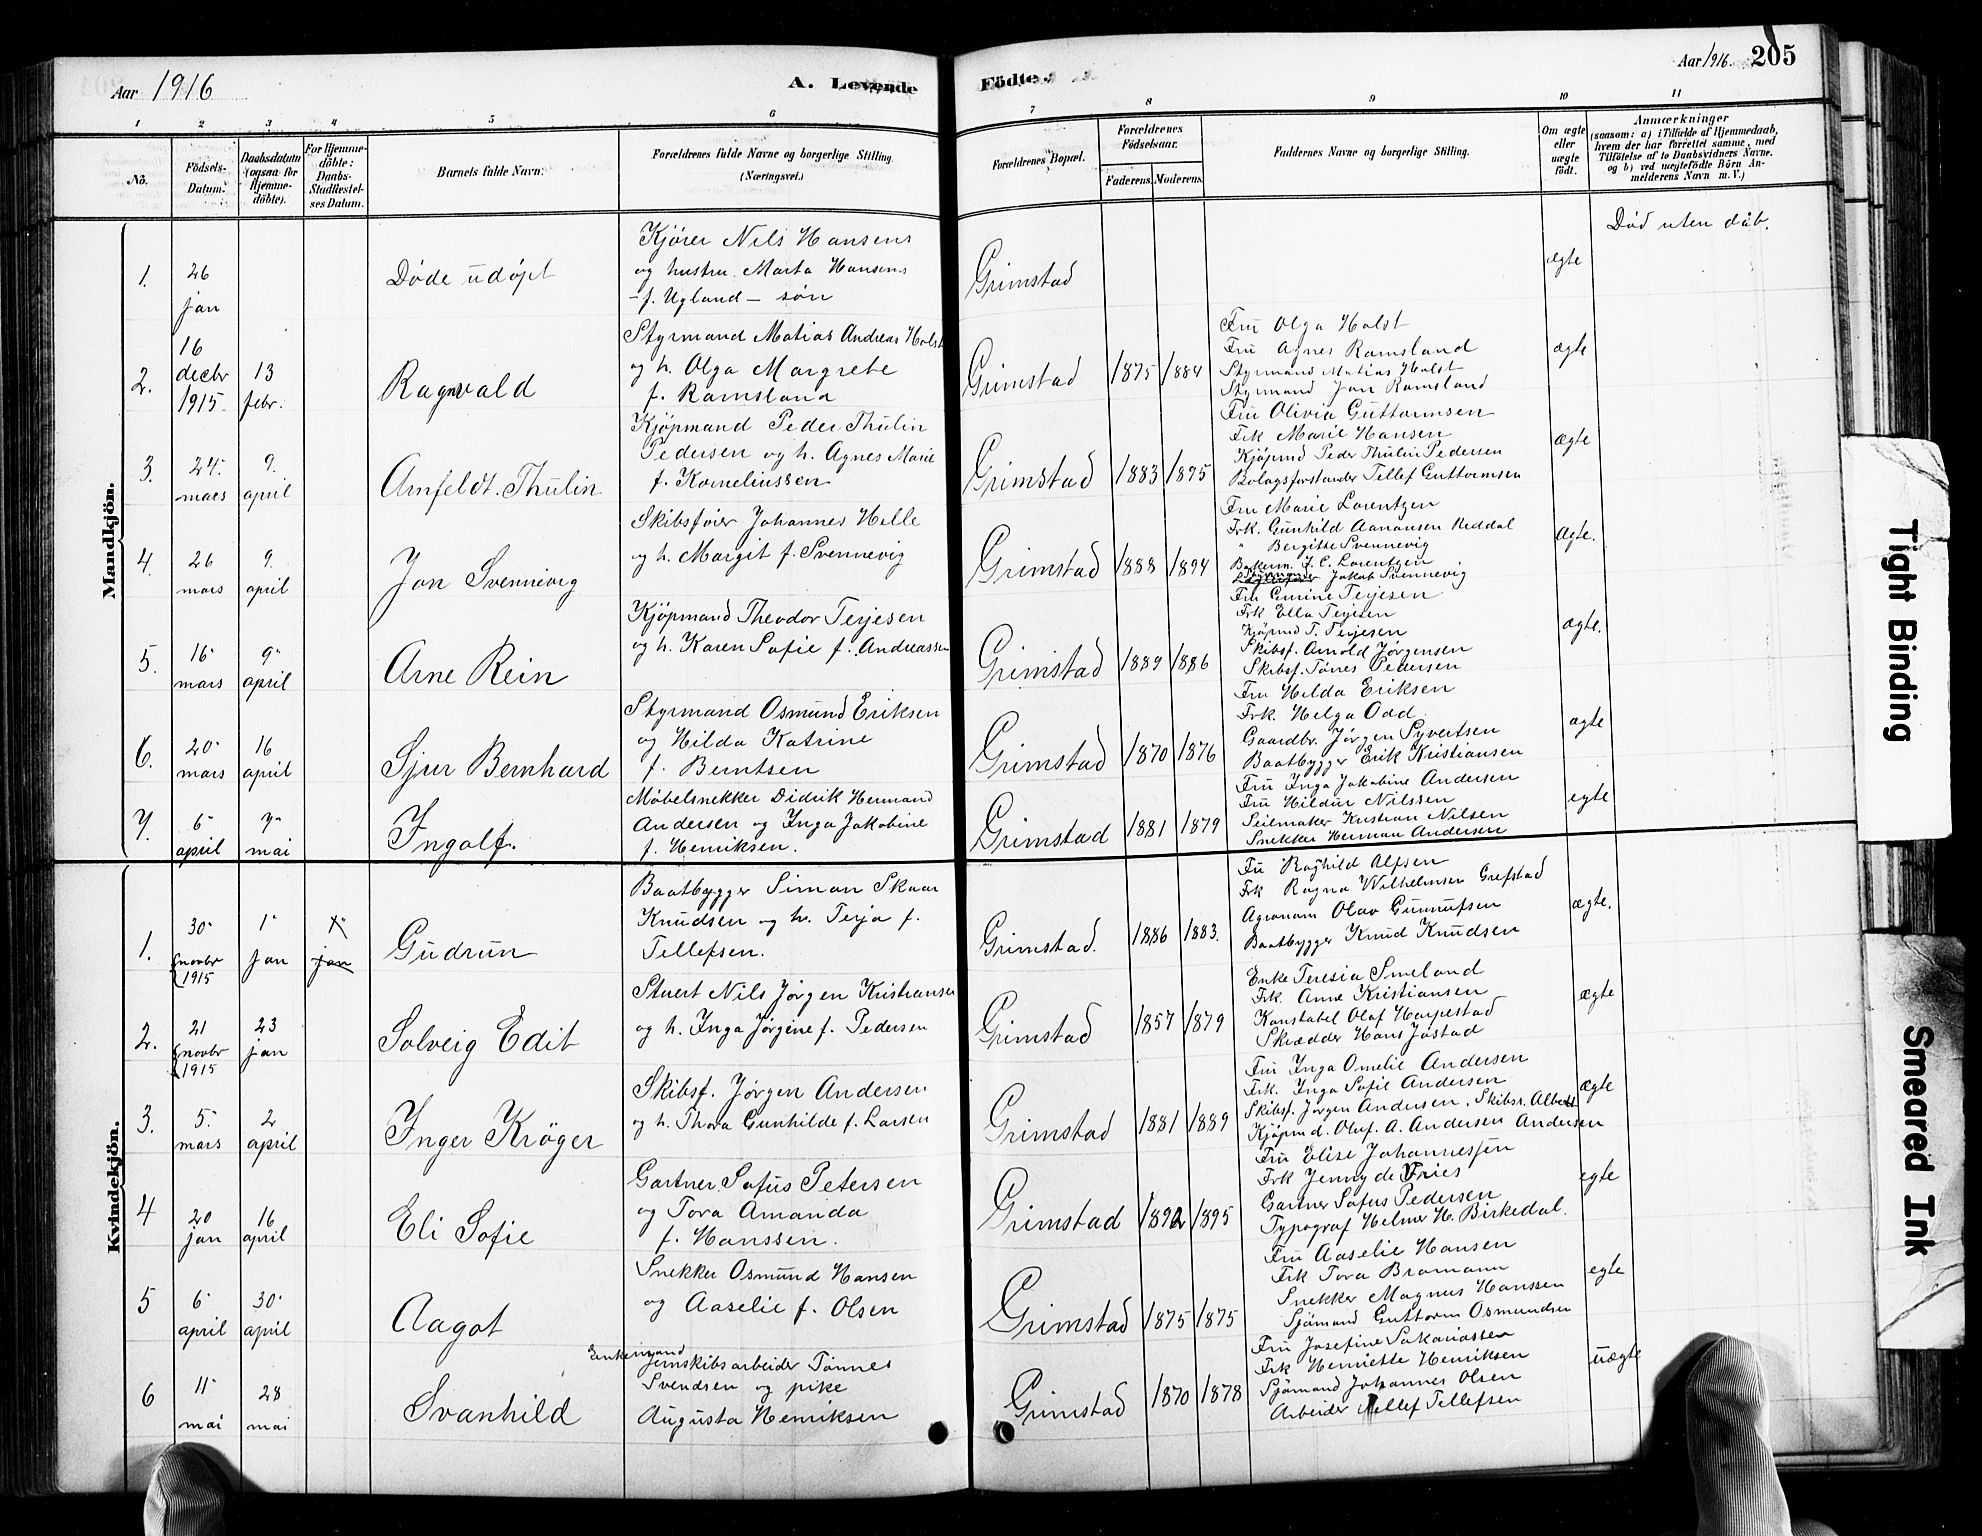 Aar 1916
A. Levende
Födte.
Aar 1916. 205
1 2 3 4 5 6 7 8 9 10 11
No.
Födsels-Datum.
Daabsdatum (ogsaa for Hjemmedöbte).
For Hjemmedöbte: Daabs-Stadfæstelses Datum.
Barnets fulde Navn.
Forældrenes fulde Navne og borgerlige Stilling.
(Næringsvei.)
Forældrenes Bopæl.
Forældrenes Födselsaar.
Faderens. Moderens.
Faddernes Navne og borgerlige Stilling.
Om ægte eller uægte födt.
Anmærkninger
(saasom: a) i Tilfælde af Hjemmedaab,
hvem der har forrettet samme, med
Tilföielse af to Daabsvidners Navne.
og b) ved uægtefödte Börn An-
melderens Navn m. V.)
Mandkjön.
1. 26 jan
Døde udøpt
Kjører Nils Hansens
og hustru Marta Hansens
- f. Ugland - søn
Grimstad
ægte
Død uten dåb.
2. 16 decbr 1915. 13 febr.
Ragnvald
Styrmand Matias Andreas Holst
og h. Olga Margrete
f. Ramsland
Grimstad 1875 1884
Fru Olga Holst
Fru Agnes Ramsland
Styrmand Matias Holst
Styrmand Jan Ramsland
ægte
3. 24. mars 9. april
Arnfeldt. Thulin
Kjøpmand Peder Thulin
Pedersen og h. Agnes Marie
f. Korneliussen
Grimstad 1883 1895
Fru Olivia Guttormsen
Frk Marie Hansen
Kjøpmd Peder Thulin Pedersen
Bolagsforstander Tellef Guttormsen
ægte
4. 26 mars 9. april
Jon Svennevig
Skibsfører Johannes Helle
og h. Margit f. Svennevig
Grimstad 1888 1894
Fru Marie Lorentzen
Frk. Gunhild Aanonsen Reddal
" Bergitte Svennevig
Bakerm. J. C. Lorentzen
Styrmand Jakob Svennevig
ægte.
5. 16 mars 9 april
Arne Rein
Kjøpmand Theodor Terjesen
og h. Karen Sofie f. Andreassen
Grimstad 1889 1886
Fru Gurine Terjesen
Frk Ella Terjesen
Kjøpmd T. Terjesen
Skibsf. Arnold Jørgensen
Skibsf. Tönes Pedersen
ægte.
6. 20 mars 16 april
Sjur Bernhard
Styrmand Osmund Eriksen
og Hilda Katrine
f. Berntsen
Grimstad 1870 1876
Fru Hilda Eriksen
Frk. Helga Odd
Gaardbr. Jørgen Syvertsen
Baatbygger Erik Kristiansen
ægte
7. 6 april 7 mai
Ingolf.
Møbelsnekker Didrik Hermand
Andersen og Inga Jakobine
f. Henriksen.
Grimstad 1881 1879
Fru Inga Jakobine Andersen
Fru Hildur Nilssen
Seilmaker Kristian Nilsen
Snekker Herman Andersen
egte
Kvindekjön.
1. 30 novbr 1915 1 jan jan
Gudrun
Baatbygger Simon Skaar
Knudsen og h. Terja f.
Tellefsen.
Grimstad. 1886 1883.
Fru Raghild Alfsen
Frk Ragna Wilhelmsen Grefstad
Agronom Olav Gunnufsen
Baatbygger Knud Knudsen
ægte.
2. 21 novbr 1915 23 jan
Solveig Edit
Stuert Nils Jørgen Kristiansen
og h. Inga Jørgine f. Pedersen
Grimstad 1857 1879
Enke Teresia Smeland
Frk. Anne Kristiansen
Konstabel Olaf Harpestad
Skrædder Hans Jøstad
ægte
3. 5. mars 2 april
Inger Krøger
Skibsf. Jørgen Andersen
og h. Thora Gunhilde f. Larsen
Grimstad 1881 1889
Fru Inga Omelie Andersen
Frk. Inga Sofie Andersen
Skibsf. Jørgen Andersen, Skibsr. Albert
Kjøpmd. Oluf. A. Andersen Andersen
ægte
4 20 jan 16 april
Eli Sofie
Gartner Sofus Petersen
og Tora Amanda
f. Hanssen.
Grimstad 1892 1895
Fru Elise Johannessen
Frk Jenny de Vries
Gartner Sofus Pedersen
Typograf Helmer H. Birkedal.
egte
5 6 april 30 april
Aagot
Snekker Osmund Hansen
og Aaselie f. Olsen
Grimstad 1875 1875
Fru Aaselie Hansen
Frk Tora Bromann
Snekker Magnus Hanssen
Sjømand Guttorm Osmundsen
egte
6 11 mai 28 mai
Svanhild
Enkemand
Jernskibsarbeider Tønnes
Svendsen og pike
Augusta Henriksen
Grimstad 1870 1878
Fru Josefine Sakariassen
Frk Henriette Henriksen
Sjømand Johannes Olsen
Arbeider Tellef Tellefsen
uægte
Tight Binding
Smeared Ink